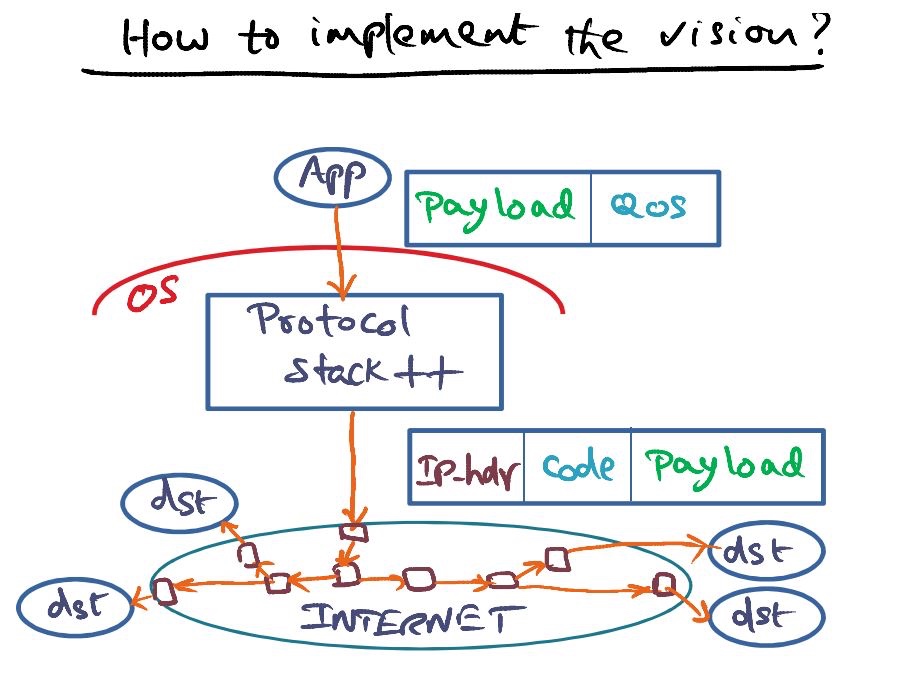 How to implement the vision?
App
Payload QoS
OS
Protocol
stack ++
IP-hdr code Payload
dst
dst
dst
dst
INTERNET